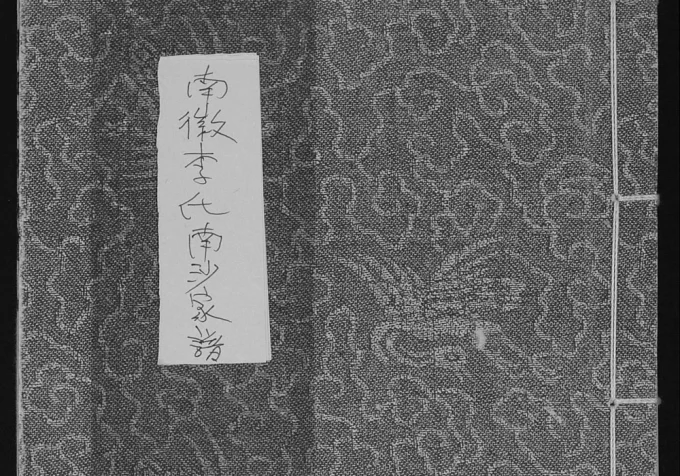 南徽李氏南沙家譜